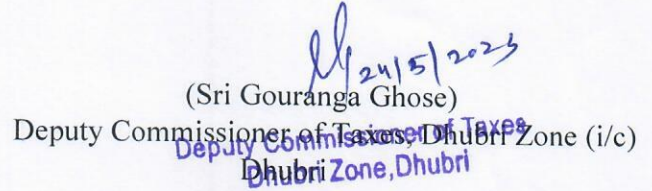 24/5/2023
(Sri Gouranga Ghose)
Deputy Commissioner of Taxes, Dhubri Zone (i/c)
Deputy Commissioner of Taxes
Dhubri
Dhubri Zone, Dhubri